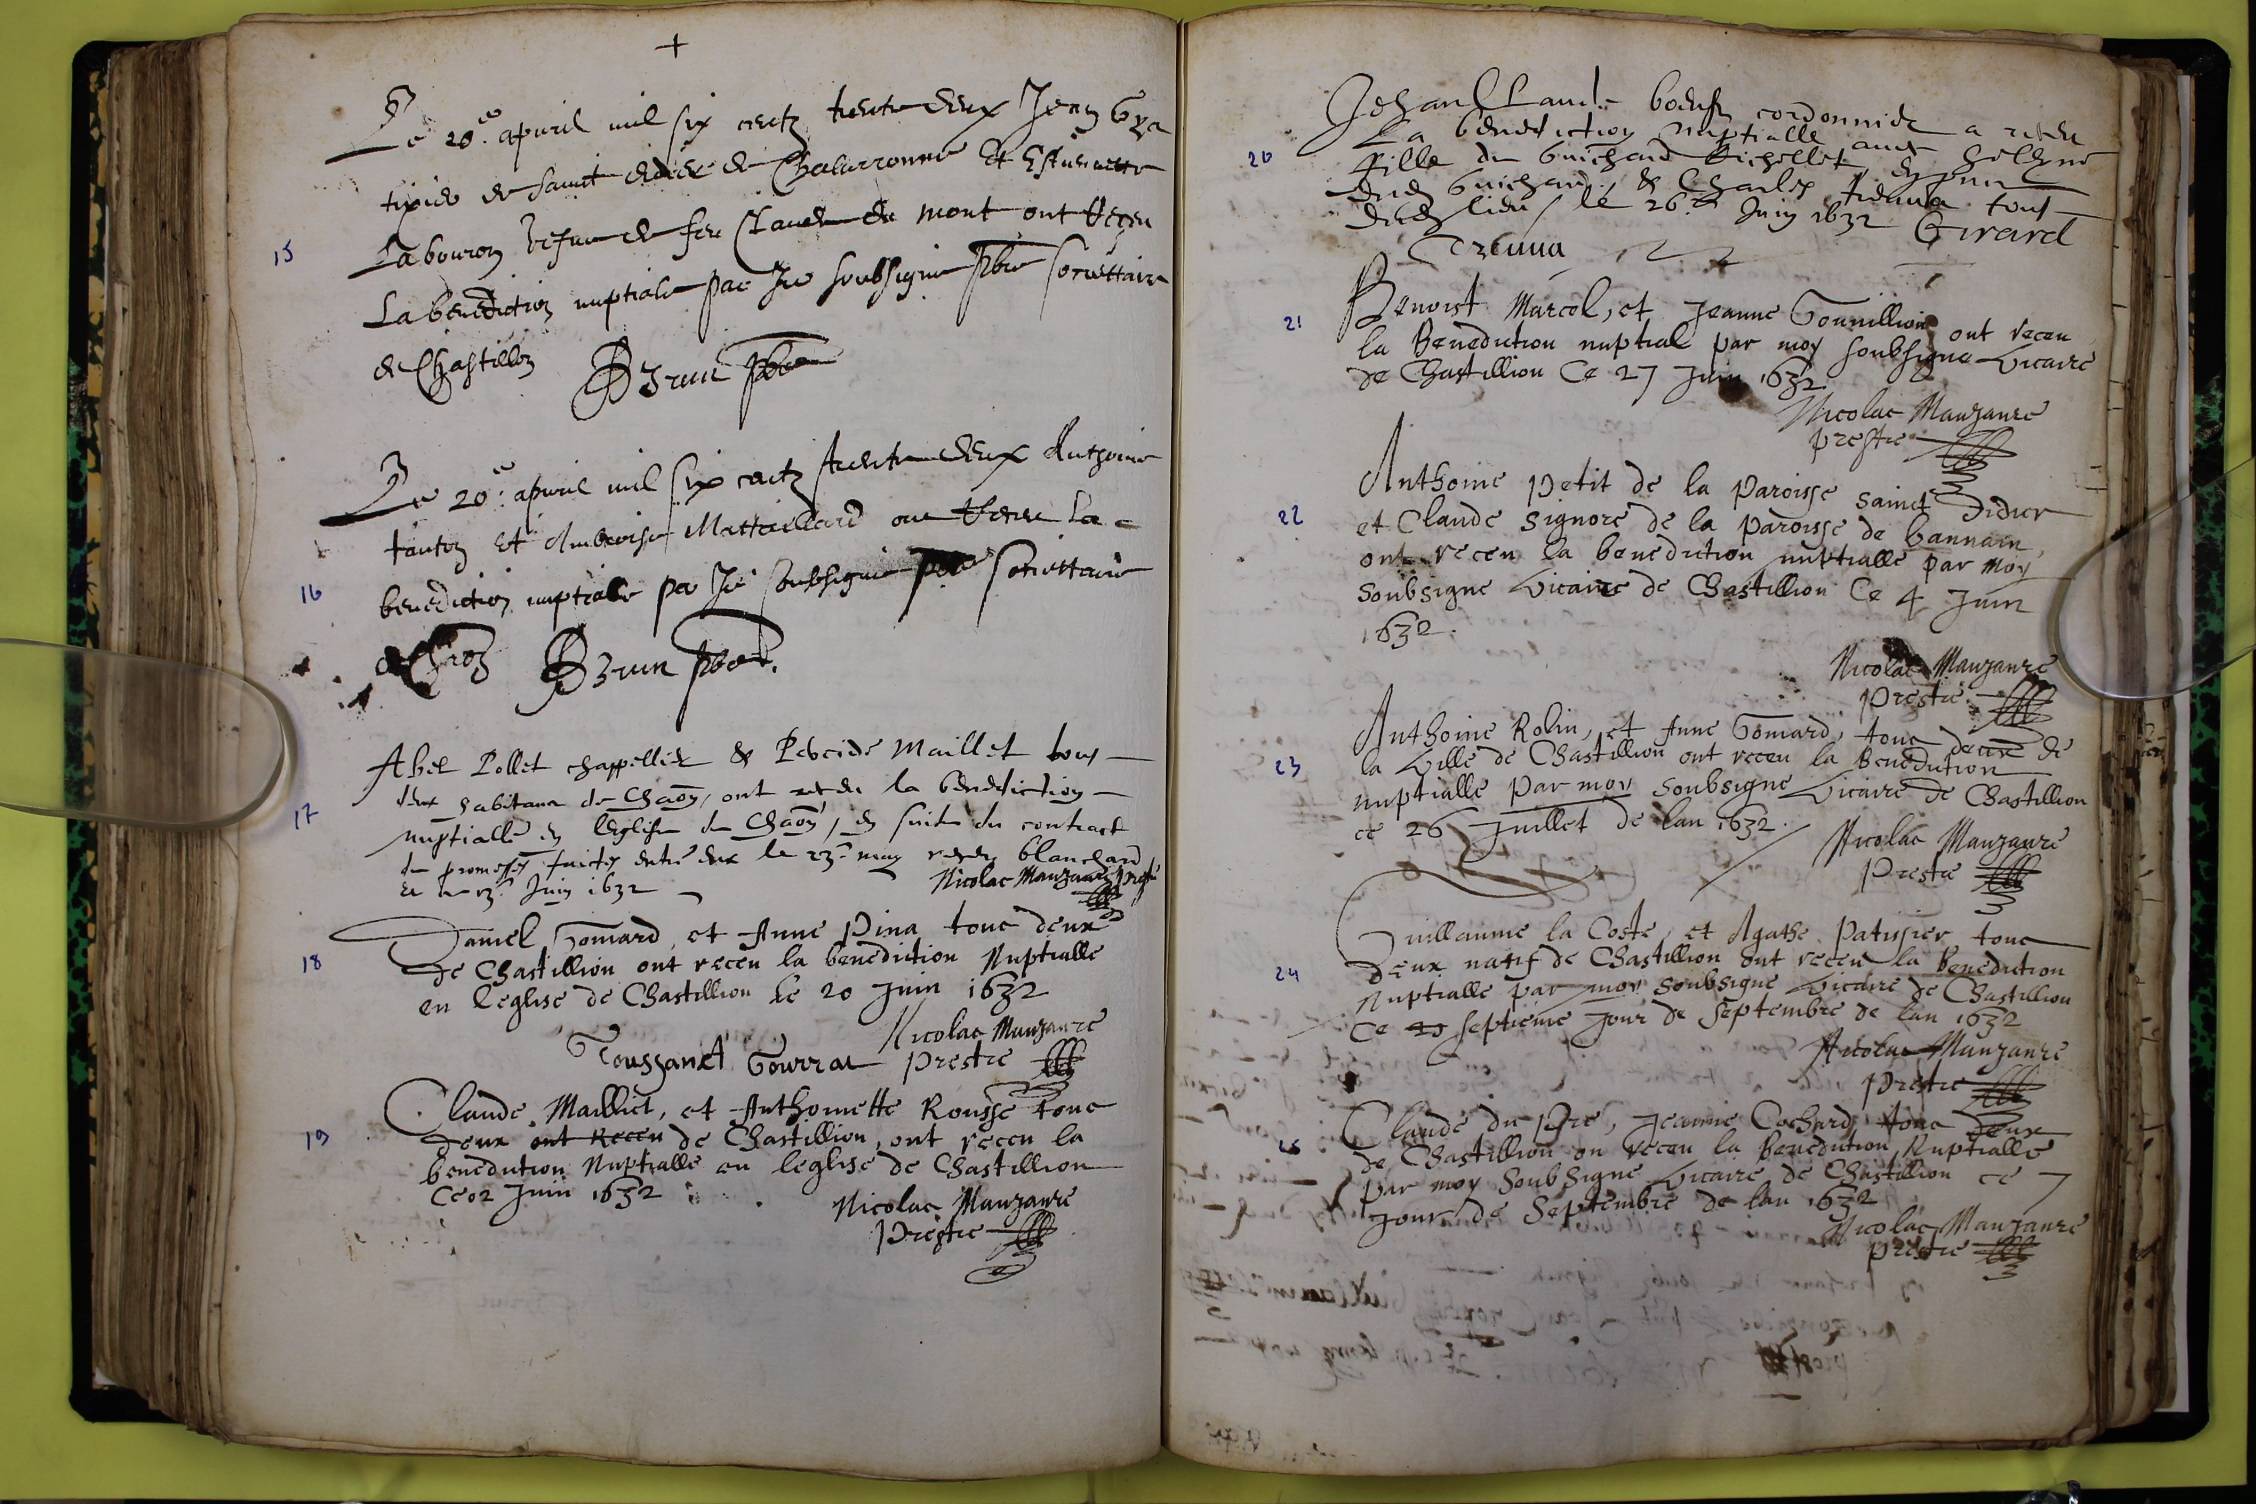 +
Le 20e. apvril mil six centz trente deux Jean
tixier de Saint didier de Chalarronne Et Estiennette
15
Labouron vefue de feu Claude du mont ont Receu
La benediction nuptiale par Je soubsigne pbre societtaire
de Chastillon
Brun pbre
Le 20e. apvril mil six centz trente deux Anthoine
tanton Et Ambroise Mataillard ont Receu La
16
benediction nuptiale par Je soubsigne pbre societtaire
de Chaon Brun pbre.
Abel Pollet chappellier & Maillet tous
deux habitans de Chaon, ont receu la benediction
17
nuptialle en leglise de Chaon, en suite du contract
de promesses faictes entre eux le 23e may receu blanchard
Juin 1632
Nicolas Manzanre prestre
Daniel Gomard, et Anne Pina tous deux
18
de Chastillion ont receu la benediction Nuptialle
en leglise de Chastillion le 20 Juin 1632
Nicolas Manzanre
Toussanct Gourrat prestre
Claude Mailliet, et Anthoinette Rousse tous
19
deux ont receu de Chastillion, ont receu la
benediction Nuptialle en leglise de Chastillion
Ce 02 Juin 1632
Nicolas Manzanre
Prestre
Jehan Claude boeuf cordonnier a receu
La benediction nuptialle avec helene
20
fille de Guichard Michellet, en pnce
dud Guichard, & Charles treuva tous
dud lieu, le 26e Juin 1632 Girard
Treuva
Benoist Marcol, et Jeanne Gounillion ont receu
21
la Benediction nuptial par moy soubsigne Vicaire
de Chastillion Ce 27 Juin 1632
Nicolas Manzanre
prestre
Anthoine Petit de la Paroisse sainct Didier
22
et Claude Signore de la paroisse de bannain,
ont receu la benediction nuptialle par moy
soubsigne Vicaire de Chastillion Ce 4 Juin
1632.
Nicolas Manzanre
Prestre
Anthoine Rolin, et Anne Gomard, tous deux de
23
la Ville de Chastillion ont receu la Benediction
nuptialle par moy soubsigne Vicaire de Chastillion
ce 26 Juillet de lan 1632.
Nicolas Manzanre
Prestre
Guillaume la Coste, et Agathe Patissier tous
24
deux natif de Chastillion ont receu la benediction
Nuptialle par moy soubsigne Vicaire de Chastillion
Ce septieme Jour de septembre de lan 1632
Nicolas Manzanre
Prestre
Claude du Pre, Jeanne Cochard, tous deux
25
de Chastillion on receu la Benediction Nuptialle
par moy soubsigne Vicaire de Chastillion ce 7
Jour de Septembre de lan 1632
Nicolas Manzanre
prestre